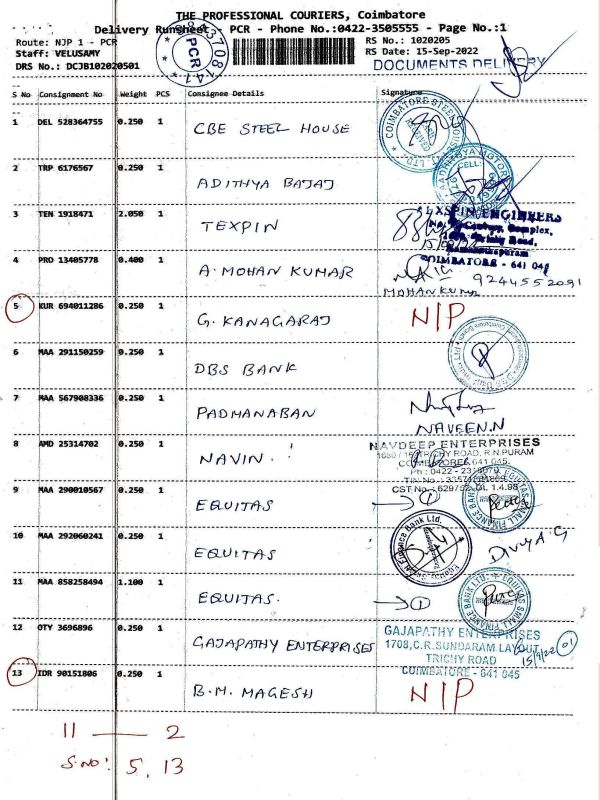 THE PROFESSIONAL COURIERS, Coimbatore
Delivery Runsheet - PCR - Phone No.:0422-3505555 - Page No.:1
Route: NJP 1 - PCR
RS No.: 1020205
Staff: VELUSAMY
RS Date: 15-Sep-2022
DRS No.: DCJB102020501
DOCUMENTS DELIVERY
PCR
S No Consignment No Weight PCS Consignee Details Signature
1 DEL 528364755 0.250 1 CBE STEEL HOUSE
2 TRP 6176567 0.250 1 ADITHYA BAJAJ
CELL:
3 TEN 1918471 2.050 1 TEXPIN
TEXSPIN ENGINEERS
Complex,
Trichy Road,
COIMBATORE - 641 045
4 PRD 13405778 0.400 1 A. MOHAN KUMAR
9244552091
MOHAN KUMAR
5 KUR 694011286 0.250 1 G. KANAGARAJ N/P
6 MAA 291150259 0.250 1 DBS BANK
7 MAA 567908336 0.250 1 PADMANABAN
NAVEEN.N
8 AMD 25314702 0.250 1 NAVIN.
NAVDEEP ENTERPRISES
TRICHY ROAD, R.N.PURAM
COIMBATORE 641 045.
9 MAA 290010567 0.250 1 EQUITAS → 1
10 MAA 292060241 0.250 1 EQUITAS
DIVYA G
11 MAA 858258494 1.100 1 EQUITAS. → 1
12 OTY 3696896 0.250 1 GAJAPATHY ENTERPRISES
GAJAPATHY ENTERPRISES
1708, C.R. SUNDARAM LAYOUT
TRICHY ROAD
COIMBATORE - 641 045
15/9/22 01
13 IDR 90151806 0.250 1 B.M. MAGESH N/P
11 — 2
S.NO: 5, 13